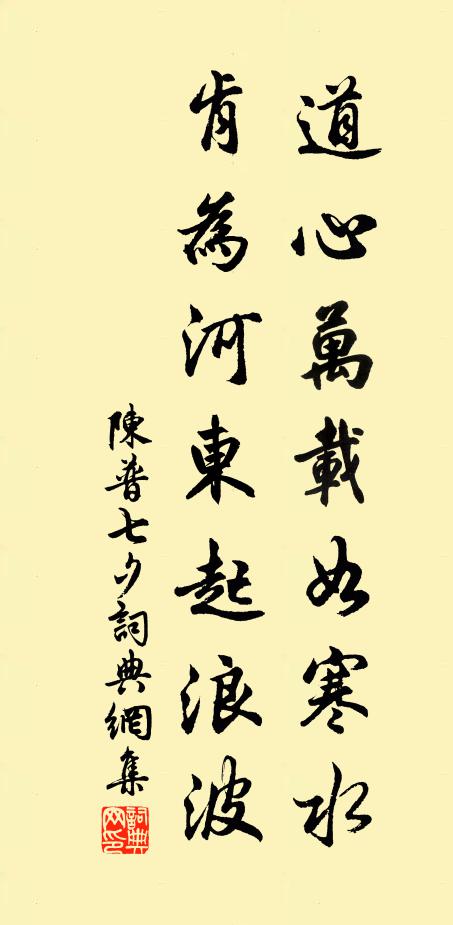 道心萬載如寒水
肯為河東起浪波
陳普七夕詞典網集
詞典網印